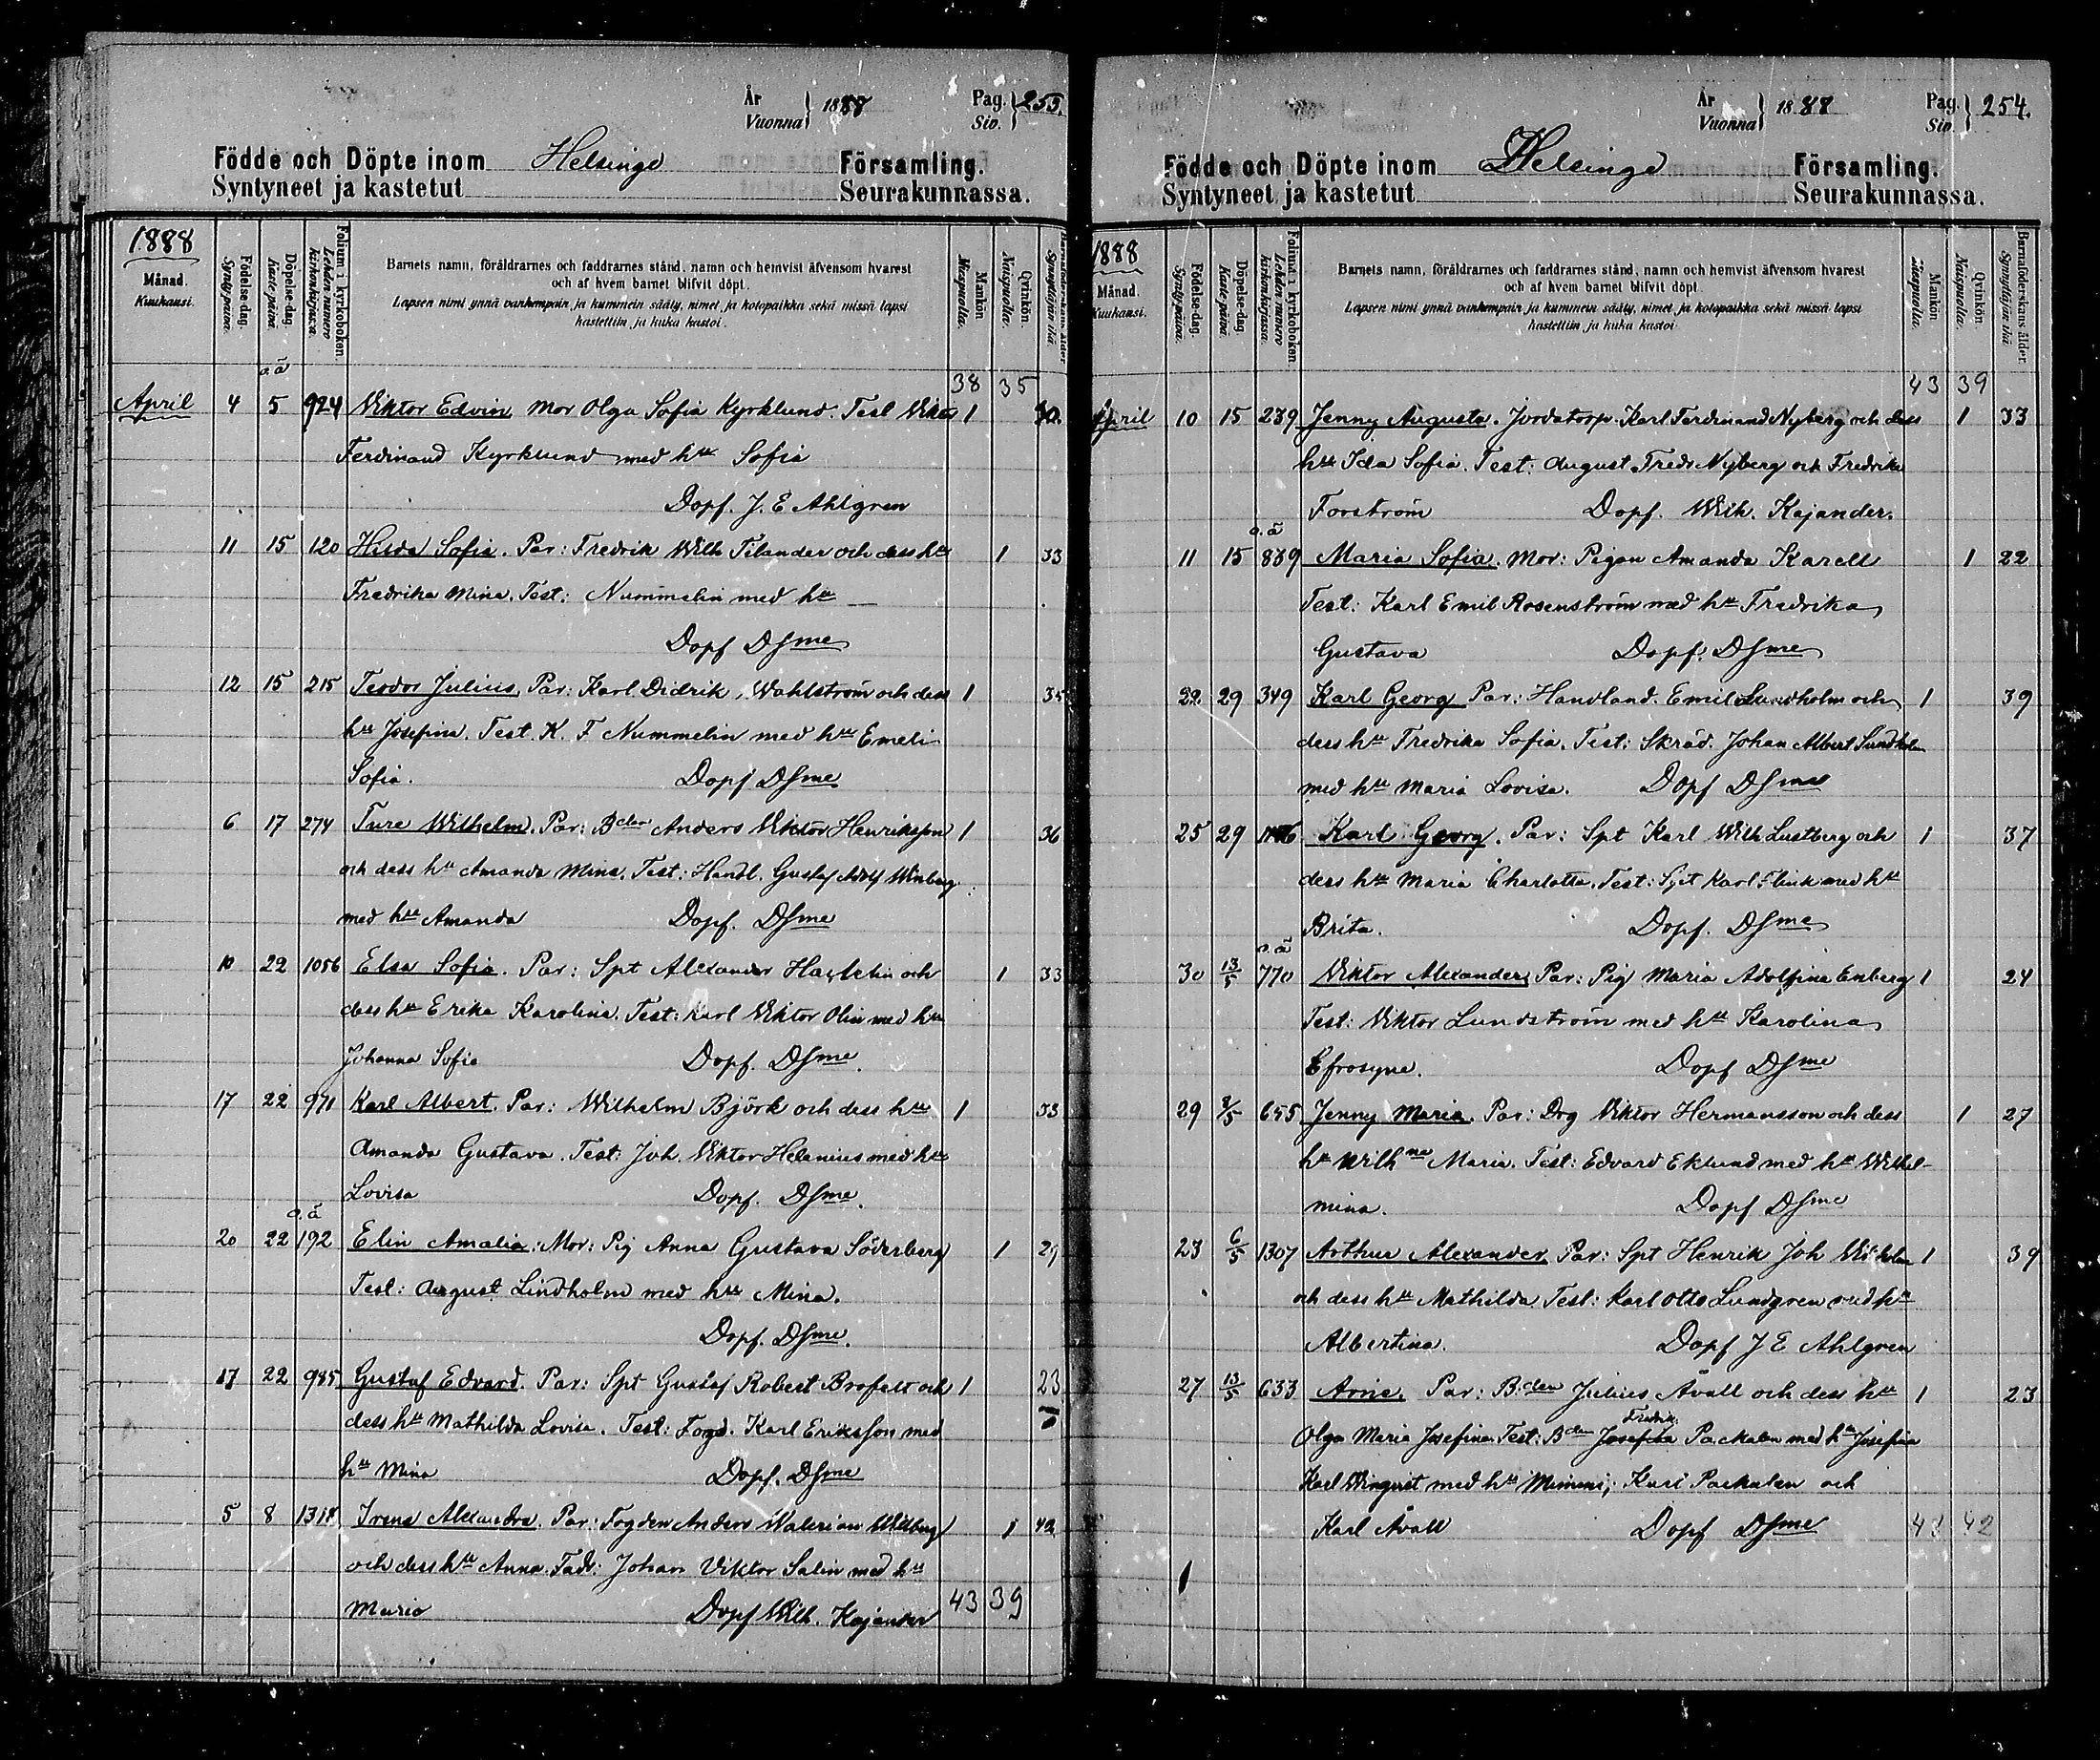 År
Vuonna } 1888
Pag.
Siv. } 253.
Födde och Döpte inom Helsinge Församling.
Syntyneet ja kastetut Seurakunnassa.
1888
Månad.
Kuukausi.
Födelse-dag.
Synty-päiwä.
Döpelse-dag.
Kaste-päiwä.
Folium i kyrkoboken.
Lehden numero kirkonkirjassa.
Barnets namn, föräldrarnes och faddrarnes stånd, namn och hemvist äfvensom hvarest
och af hvem barnet blifvit döpt.
Lapsen nimi ynnä vanhempain ja kummein sääty, nimet ja kotopaikka sekä missä lapsi
kastettiin ja kuka kastoi.
Mankön
Miespuolia.
Qvinkön.
Naispuolia.
Barnaföderskans ålder.
Synnyttäjän ikä.
o.ä
38 35
April 4 5 924 Viktor Edvin, Mor Olga Sofia Kyrklund. Test Viktor 1
Ferdinand Kyrklund med hu Sofia
Dopf. J. E Ahlgren
11 15 120 Hilda Sofia. Par: Fredrik Wilh Tilander och dess hu 1 33
Fredrika Mina. Test: Nummelin med hu —
Dopf DSme
12 15 215 Teodor Julius, Par: Karl Didrik Wahlström och dess 1 35
hu Josefina. Test. K. F Nummelin med hu Emeli
Sofia. Dopf DSme
6 17 274 Ture Wilhelm. Par: Bden Anders Viktor Henriksson 1 36
och dess hu Amanda Mina. Test: Handl. Gustaf Adolf Winberg
med hu Amanda Dopf. DSme
10 22 1056 Elsa Sofia. Par: Spt Alexander och 1 33
dess hu Erika Karolina. Test: Karl Viktor Olin med hu
Johanna Sofia Dopf. DSme.
17 22 971 Karl Albert. Par: Wilhelm Björk och dess hu 1 33
Amanda Gustava. Test: Joh. Viktor Helenius med hu
Lovisa Dopf. DSme.
o.ä
20 22 192 Elin Amalia: Mor: Pig Anna Gustava Söderberg 1 29
Test: August Lindholm med hu Mina.
Dopf. DSme.
17 22 985 Gustaf Edvard. Par: Spt Gustaf Robert Brofelt och 1 23
dess hu Mathilda Lovisa. Test: Fogd. Karl Eriksson med
hu Mina Dopf. DSme
5 8 1318 Irene Alexandra. Par: Fogden Anders Valerian 1 42
och dess hu Anna. Fadd: Johan Viktor Salin med hu
Maria Dopf Wilh. Kajander 43 39
År
Vuonna } 1888
Pag.
Siv. } 254.
Födde och Döpte inom Helsinge Församling.
Syntyneet ja kastetut Seurakunnassa.
1888
Månad.
Kuukausi.
Födelse-dag.
Synty-päiwä.
Döpelse-dag.
Kaste-päiwä.
Folium i kyrkoboken.
Lehden numero kirkonkirjassa.
Barnets namn, föräldrarnes och faddrarnes stånd, namn och hemvist äfvensom hvarest
och af hvem barnet blifvit döpt.
Lapsen nimi ynnä vanhempain ja kummein sääty, nimet ja kotopaikka sekä missä lapsi
kastettiin ja kuka kastoi.
Mankön
Miespuolia.
Qvinkön.
Naispuolia.
Barnaföderskans ålder.
Synnyttäjän ikä.
43 39
April 10 15 239 Jenny Augusta. Jordatorp. Karl Ferdinand Nyberg och dess 1 33
hu Ida Sofia. Test: August Fredr Nyberg och Fredrika
Forström Dopf. Wilh. Kajander.
o.ä
11 15 839 Maria Sofia. Mor: Pigan Amanda Karell 1 22
Test: Karl Emil Rosenström med hu Fredrika
Gustava Dopf. DSme
22 29 349 Karl Georg Par: Handland. Emil Sundholm och 1 39
dess hu Fredrika Sofia. Test: Skräd. Johan Albert Sundholm
med hu Maria Lovisa. Dopf DSme
25 29 Karl Georg. Par: Spt Karl Wilh Lustberg och 1 37
dess hu Maria Charlotta. Test: Spt Karl Flink med hu
Brita. Dopf. DSme
o.ä
30 13/5 770 Viktor Alexander, Par: Pig Maria Adolfina Enberg 1 24
Test: Viktor Lundström med hu Karolina
Efrosyne. Dopf DSme
29 8/5 655 Jenny Maria. Par: Drg Viktor Hermansson och dess 1 27
hu Wilhna Maria. Test: Edvard Eklund med hu Wilhel-
mina. Dopf DSme
23 6/5 1307 Arthur Alexander. Par: Spt Henrik Joh 1 39
och dess hu Mathilda Test: Karl Otto Lundgren med hu
Albertina. Dopf J E Ahlgren
27 13/5 633 Arne. Par: Bden Julius Åvall och dess hu 1 23
Fredrik
Olga Maria Josefina. Test: Bden Josefita Packalen med hu Josefina
Karl Wingqvist med hu Mimmi, Karl Packalen och
Karl Åvall Dopf DSme 42